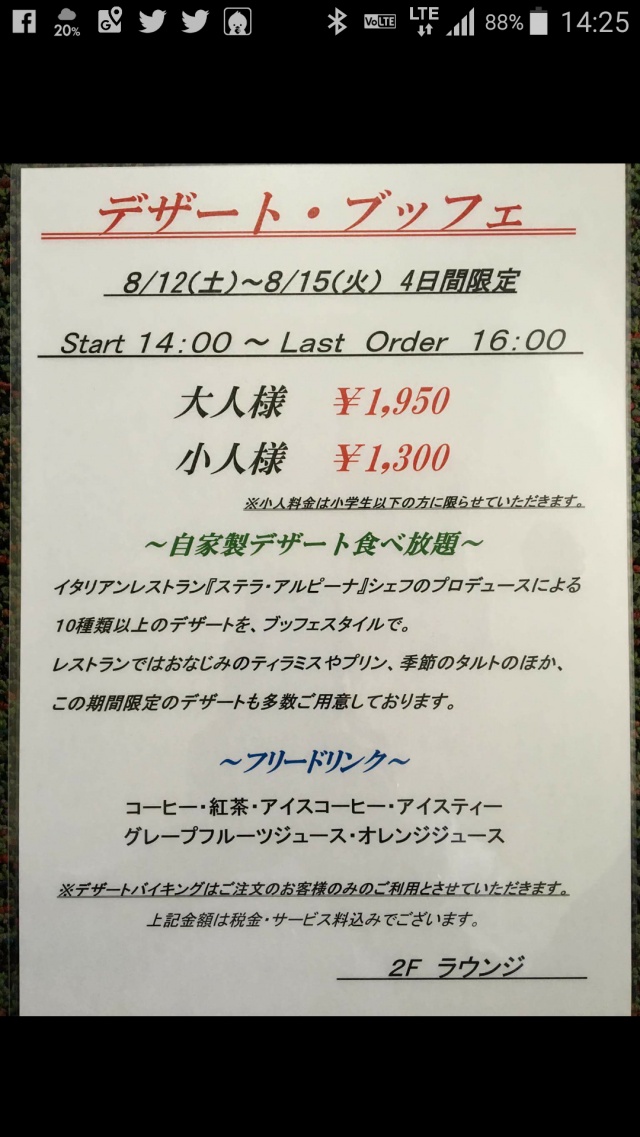 20%
VoLTE
LTE
88%
14:25
デザート・ブッフェ
8/12(土)～8/15(火) 4日間限定
Start 14:00 ～ Last Order 16:00
大人様 ￥1,950
小人様 ￥1,300
※小人料金は小学生以下の方に限らせていただきます。
～自家製デザート食べ放題～
イタリアンレストラン『ステラ・アルピーナ』シェフのプロデュースによる
10種類以上のデザートを、ブッフェスタイルで。
レストランではおなじみのティラミスやプリン、季節のタルトのほか、
この期間限定のデザートも多数ご用意しております。
～フリードリンク～
コーヒー・紅茶・アイスコーヒー・アイスティー
グレープフルーツジュース・オレンジジュース
※デザートバイキングはご注文のお客様のみのご利用とさせていただきます。
上記金額は税金・サービス料込みでございます。
2F ラウンジ